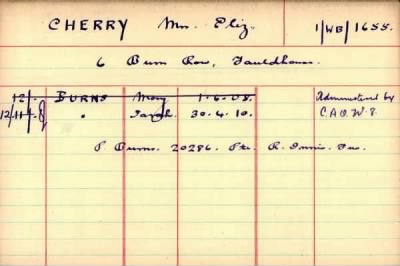 CHERRY Mrs. Eliz. 1/WB/1655.
6 Burn Row, Fauldhouse.
12/- BURNS Mary 1.6.08. Administered by
12/11 " Sarah 30.4.10. C.A.O.W.S.
P. Burns. 20286. Pte. R. Innis. Fus.